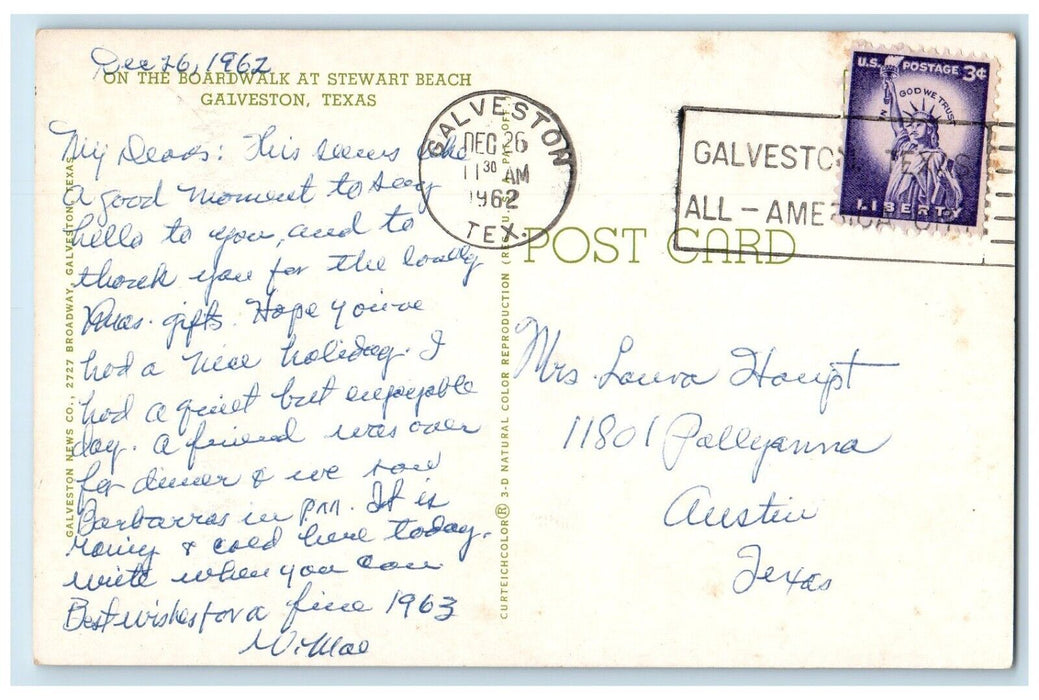 Dec 26, 1962
ON THE BOARDWALK AT STEWART BEACH
GALVESTON, TEXAS
My Dears: This seems like
a good moment to say
hello to you, and to
thank you for the lovely
Xmas. gifts. Hope you've
had a nice holiday. I
had a quiet but enjoyable
day. A friend was over
for dinner & we saw
Barbarras in P.M. It is
rainy & cold here today.
write when you can
Best wishes for a fine 1963
GALVESTON NEWS CO., 2727 BROADWAY, GALVESTON, TEXAS
CURTEICHCOLOR® 3-D NATURAL COLOR REPRODUCTION (REG. U.S. PAT. OFF.
GALVESTON
DEC 26
11 30 AM
1962
TEX.
GALVESTON, TEXAS
ALL-AMERICA CITY
U.S. POSTAGE 3¢
IN GOD WE TRUST
LIBERTY
POST CARD
Mrs. Laura Haupt
11801 Pollyanna
Austin
Texas